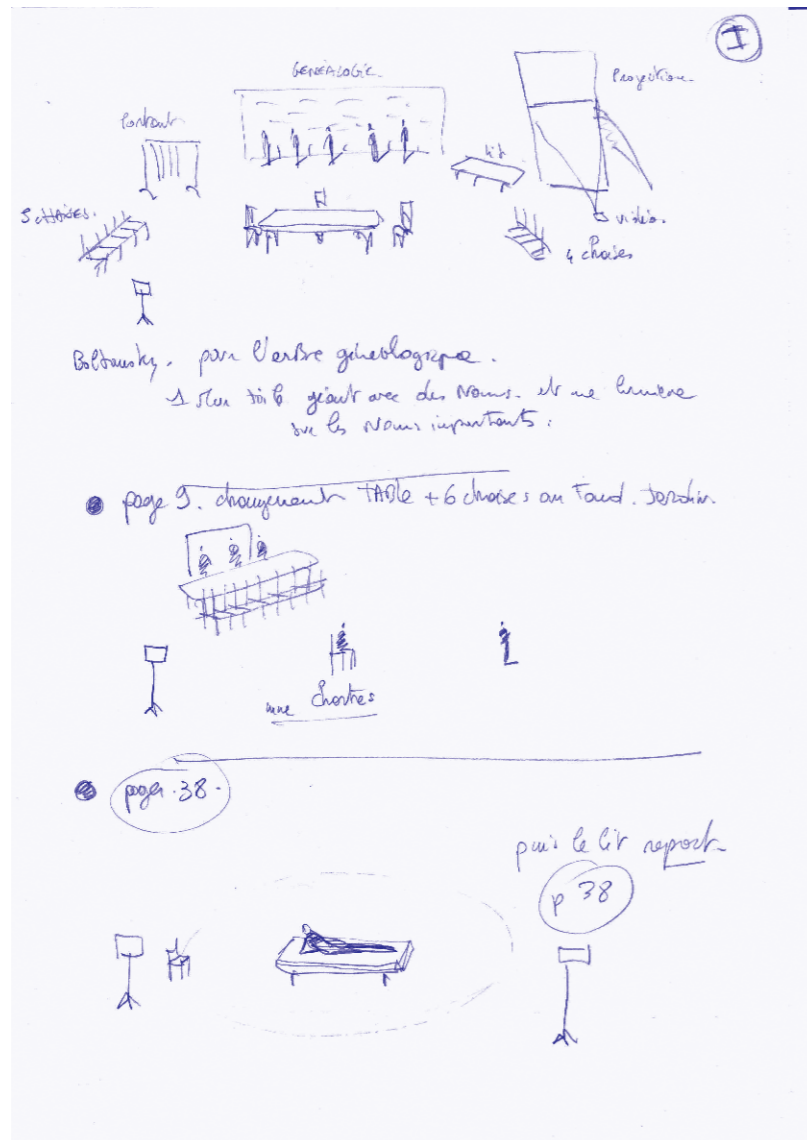 I
GENEALOGIE
Projection
Portant
lit
5 CHAISES.
vidéo.
4 chaises
Boltansky. pour l'arbre généalogique.
1 toile géant avec des Noms. et une lumière
sur les Noms importants.
page 9. changement TABLE + 6 chaises au Fond. Jardin.
une Chartres
page 38.
puis le lit repart
p 38